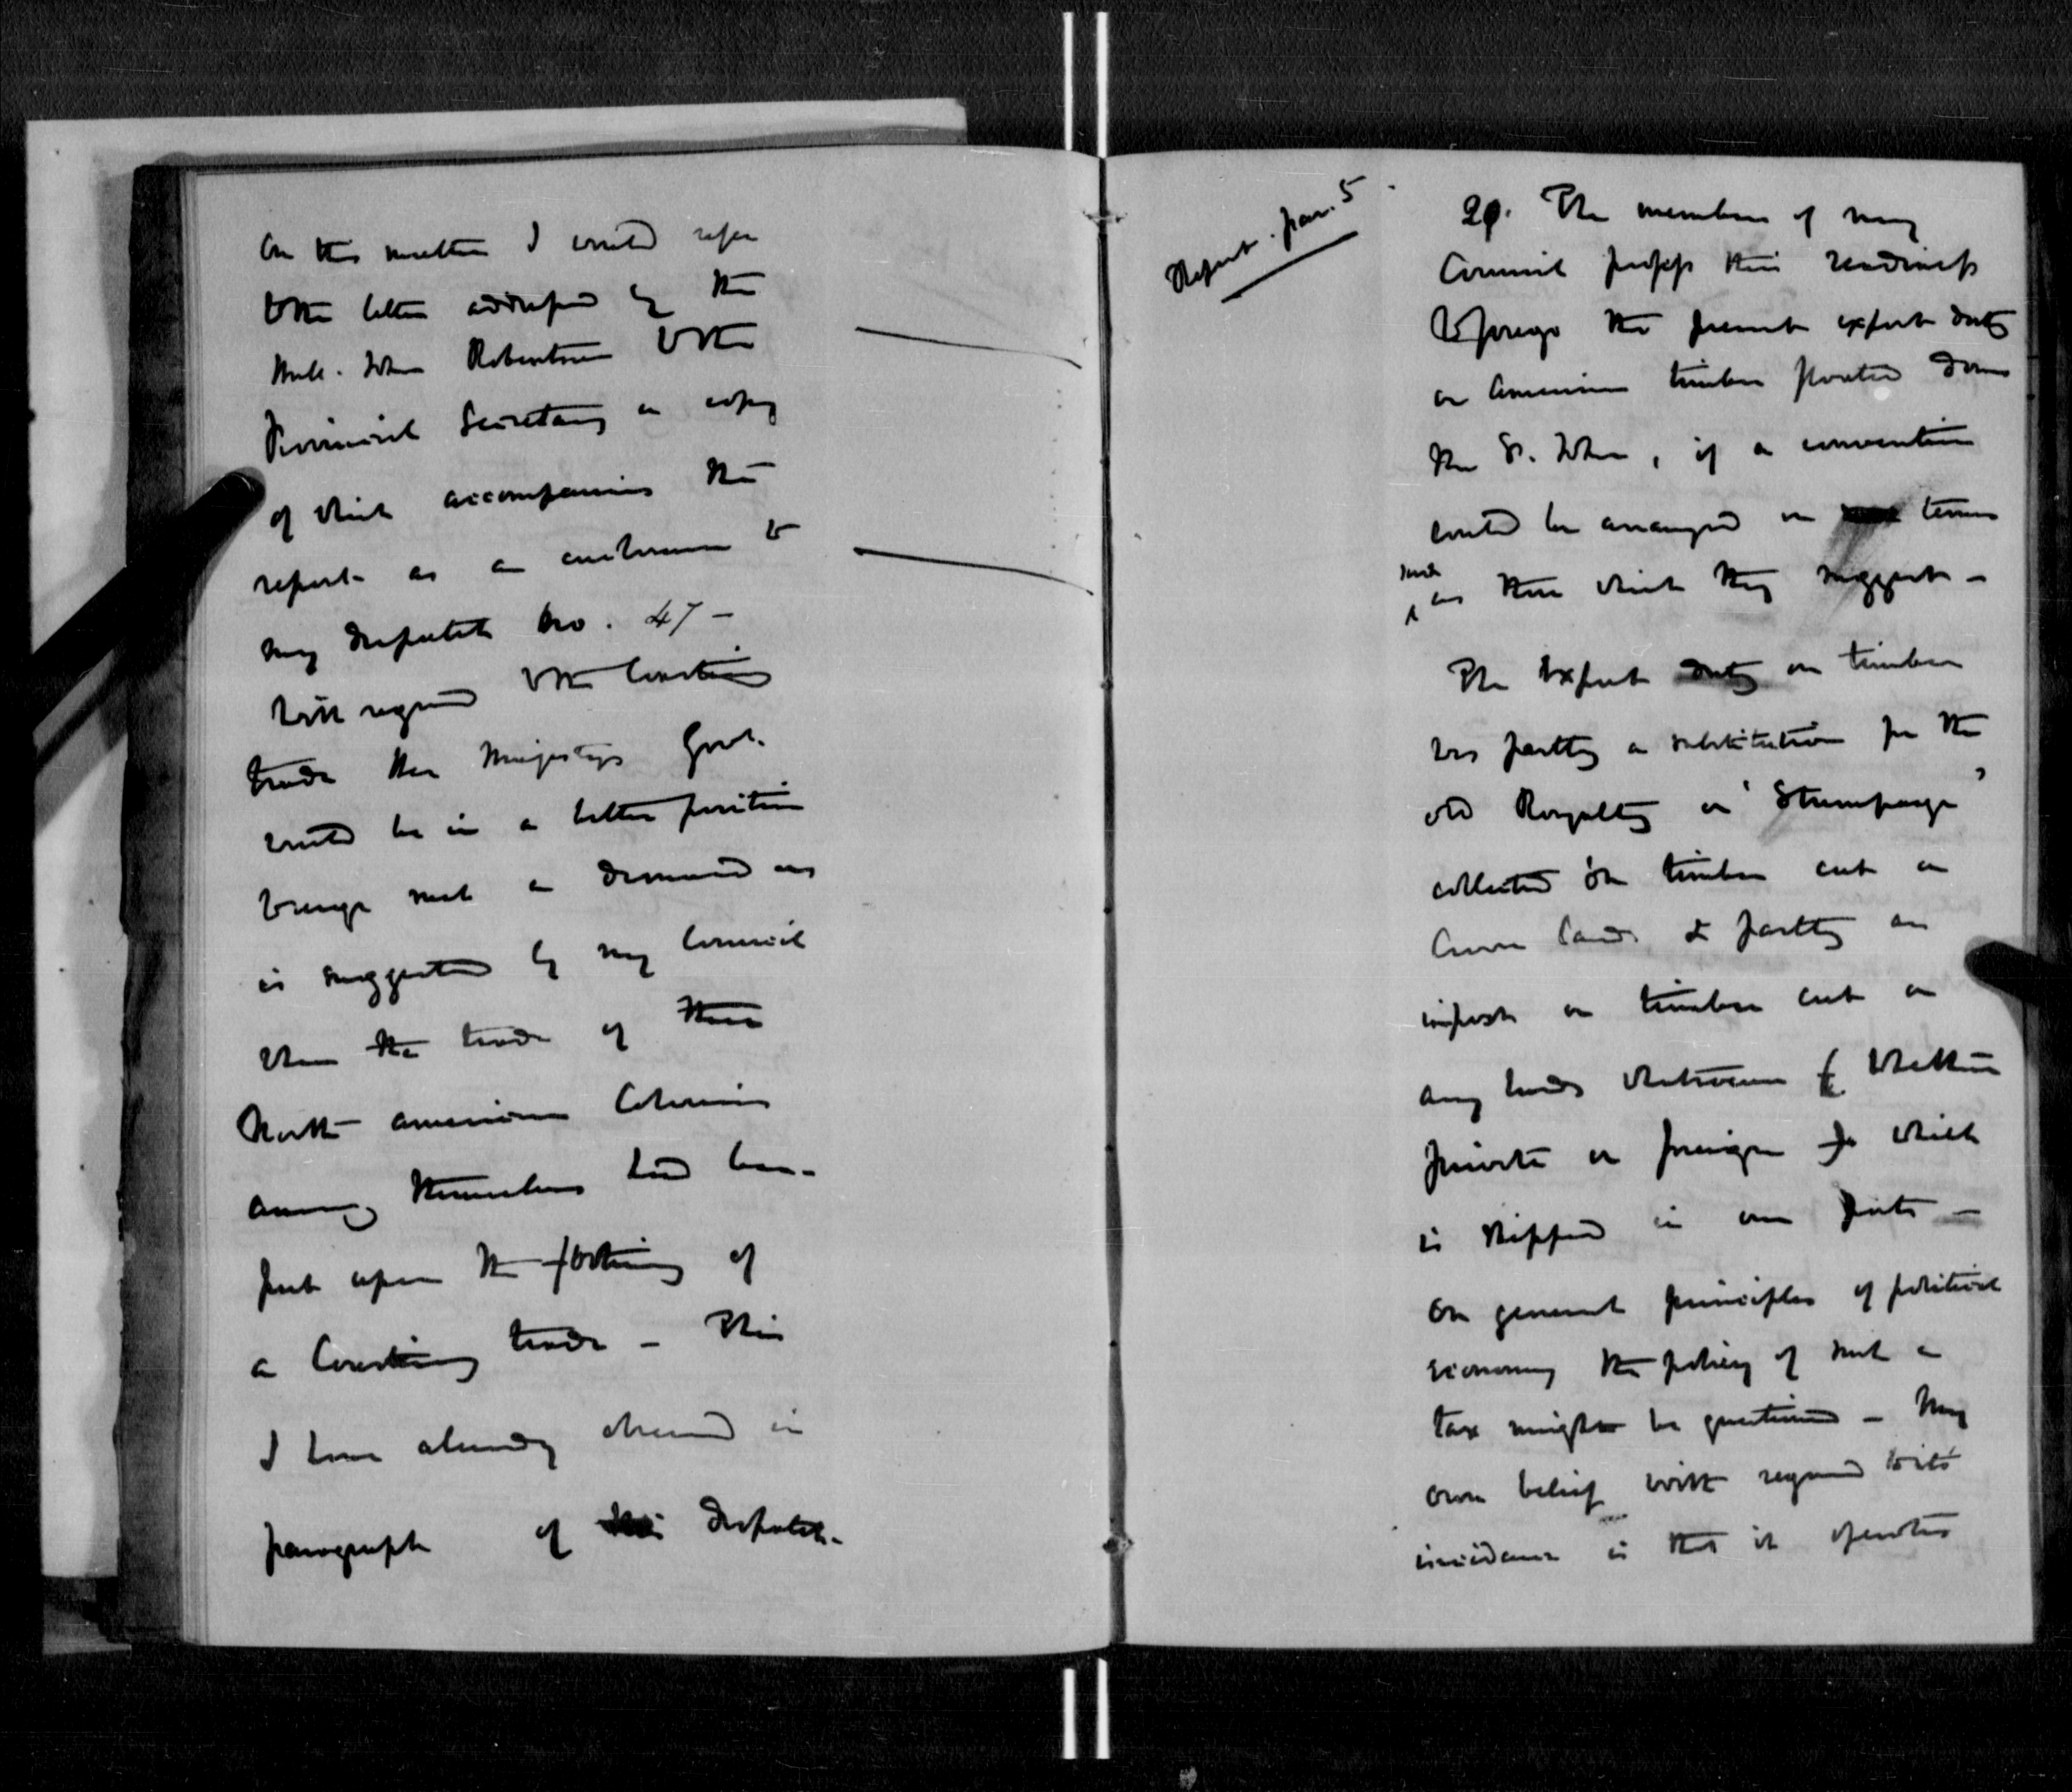 On this matter I would refer
to the letter addressed by the
Honble. John Robertson to the
Provincial Secretary a copy
of which accompanies the
report as an enclosure to
my despatch No. 47 -
With regard to the Coasting
trade Her Majestys Govt.
would be in a better position
to urge such a demand as
is suggested by my Council
when the trade of these
North American Colonies
among themselves had been
put upon the footing of
a Coasting trade - This
I have already observed in
paragraph of this despatch.
Report. par. 5
29. The members of my
Council profess their readiness
to forego the present export duty
on American timber floated down
the St. John, if a convention
could be arranged on terms
such
as those which they suggest -
The Export duty on timber
was partly a substitution for the
old Royalty or "Stumpage"
collected on timber cut on
Crown Lands & partly an
impost on timber cut on
any lands whatsoever & whether
private or foreign which
is shipped in our ports -
On general principles of political
economy the policy of such a
tax might be questioned - My
own belief with regard to its
incidence is that it operates